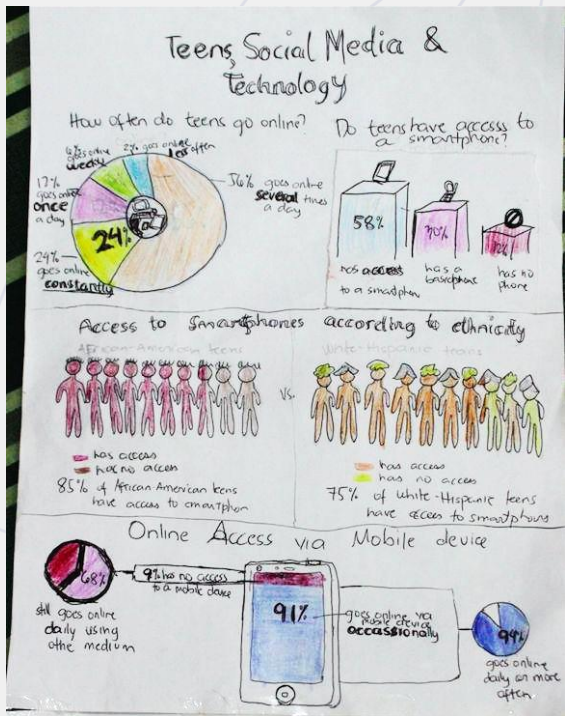 Teens, Social Media &
Technology
How often do teens go online?
6%
goes online
weekly
2% goes online
less often
56% goes online
several times
a day
17%
goes online
once
a day
24%
24%
goes online
constantly
Do teens have accesss to
a smartphone?
58%
30%
12%
has access
to a smartphon
has a
basicphone
has no
phone
Access to Smartphones according to ethnicity
African-American teens
VS.
White-Hispanic teens
has access
has no access
85% of African-American teens
have access to smartphon
has access
has no access
75% of White-Hispanic teens
have access to smartphons
Online Access via Mobile device
68%
still goes online
daily using
othe medium
9% has no access
to a mobile device
91%
goes online via
mobile device
occassionally
94%
goes online
daily or more
often